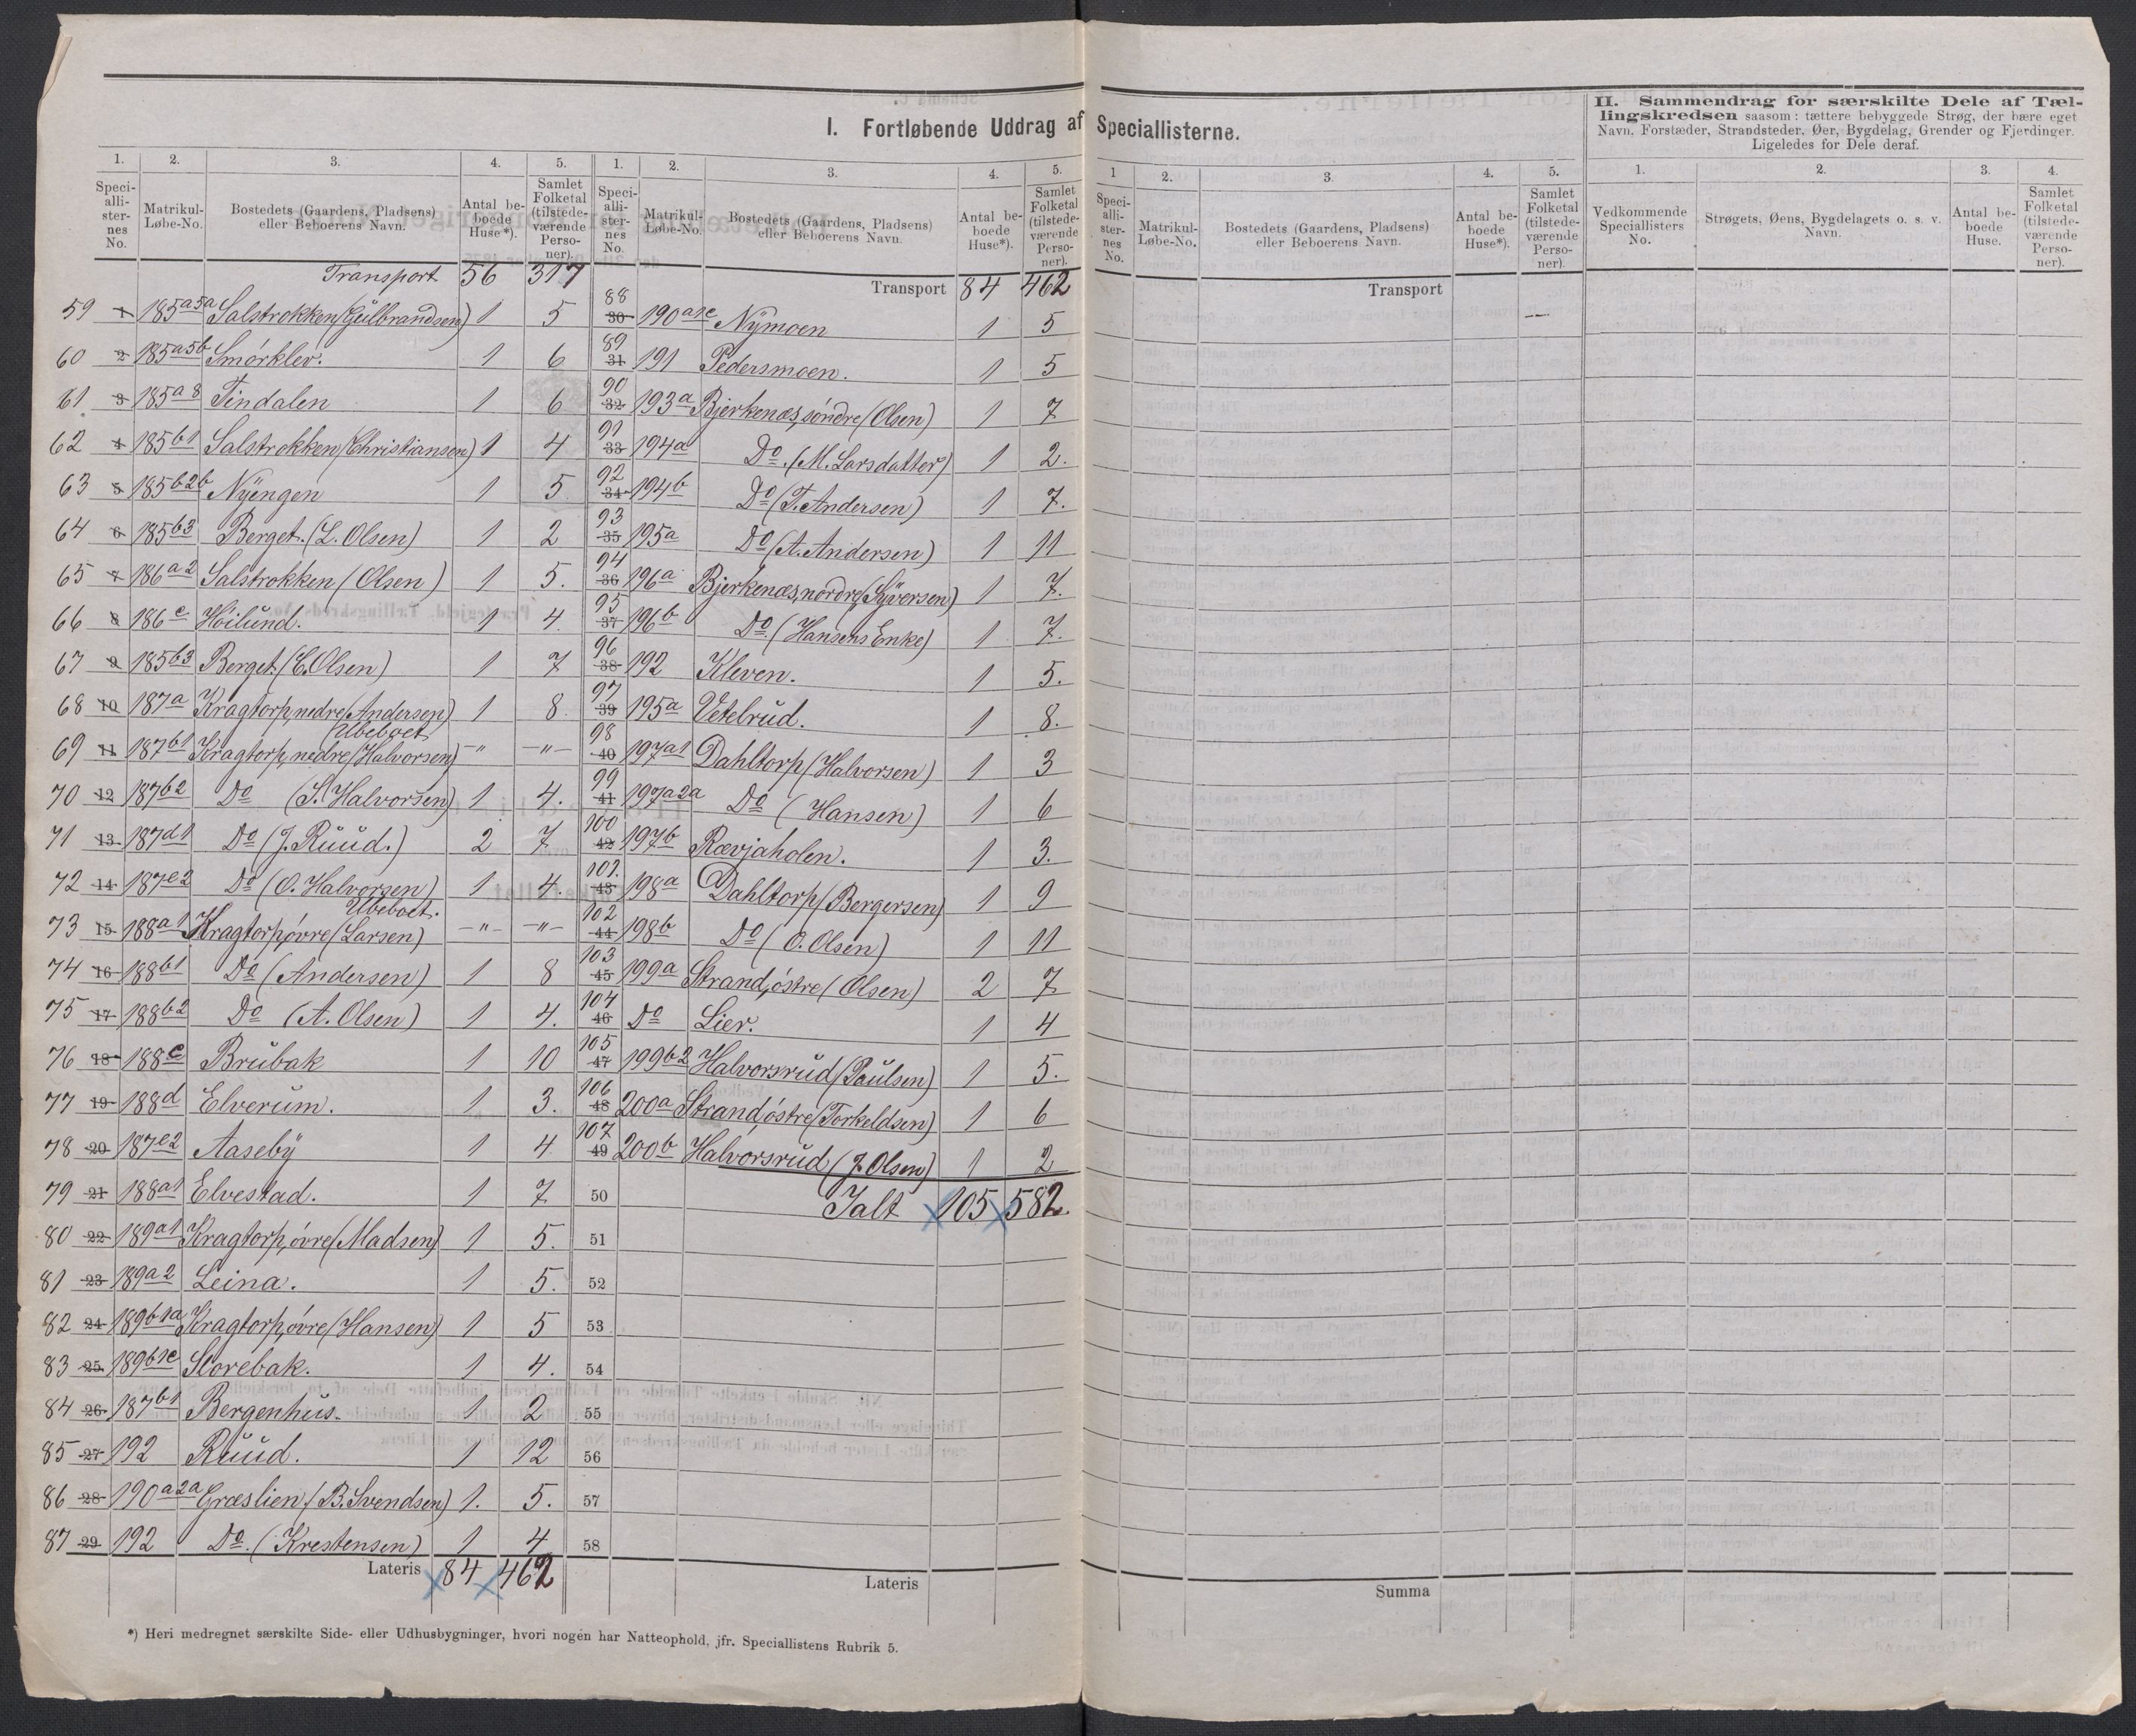 I. Fortløbende Uddrag af Speciallisterne.
II. Sammendrag for særskilte Dele af Tæl-
lingskredsen saasom: tættere bebyggede Strøg, der bære eget
Navn, Forstæder, Strandsteder, Øer, Bygdelag, Grender og Fjerdinger.
Ligeledes for Dele deraf.
1. 2. 3. 4. 5.
Speci-
alli-
ster-
nes
No.
Matrikul-
Løbe-No.
Bostedets (Gaardens, Pladsens)
eller Beboerens Navn.
Antal be-
boede
Huse*).
Samlet
Folketal
(tilstede-
værende
Perso-
ner).
Transport 56 317
59 1 185a5a Salstrokken (Gulbrandsen) 1 5
60 2 185a5b Smórklev. 1 6
61 3 185a8 Tindalen 1 6
62 4 185b1 Salstrokken (Christiansen) 1 4
63 5 185b2b Nÿengen 1 5
64 6 185b3 Berget. (L. Olsen) 1 2
65 7 186a2 Salstrokken (Olsen) 1 5.
66 8 186c Hóilund. 1 4.
67 9 185b3 Berget. (E. Olsen) 1 7
68 10 187a Kragtorp, nedre (Andersen) 1 8
Ubeboet.
69 11 187b1 Kragtorp, nedre (Halvorsen) -"- -"-
70 12 187b2 Do (S. Halvorsen) 1 4.
71 13 187d1 Do (J. Ruud.) 2 7
72 14 187e2 Do (O. Halvorsen) 1 4.
Ubeboet.
73 15 188a1 Kragtorp, óvre (Larsen) -"- -"-
74 16 188b1 Do (Andersen) 1 8
75 17 188b2 Do (A. Olsen) 1 4.
76 18 188c Brubak 1 10
77 19 188d Elverum. 1 3.
78 20 187e2 Aasebÿ 1 4
79 21 188a1 Elvestad. 1 7
80 22 189a1 Kragtorp, óvre (Madsen) 1 5.
81 23 189a2 Leina. 1 5.
82 24 189b1a Kragtorp, óvre (Hansen) 1 5
83 25 189b1c Storebak. 1 4.
84 26 187b1 Bergenhus. 1 2
85 27 192 Ruud. 1 12
86 28 190a2a Græslien (B. Svendsen) 1. 5.
87 29 192 Do. (Krestensen) 1 4
Lateris 84 462
1. 2. 3. 4. 5.
Speci-
alli-
ster-
nes
No.
Matrikul-
Løbe-No.
Bostedets (Gaardens, Pladsens)
eller Beboerens Navn.
Antal be-
boede
Huse*).
Samlet
Folketal
(tilstede-
værende
Perso-
ner).
Transport 84 462
88 30 190a1c Nÿmoen 1 5
89 31 191 Pedersmoen. 1 5
90 32 193a Bjerkenæs, sóndre (Olsen) 1 7
91 33 194a Do. (M. Larsdatter) 1 2.
92 34 194b Do (T. Andersen) 1 7.
93 35 195a Do (A. Andersen) 1 11
94 36 196a Bjerkenæs, nordre (Sÿversen) 1 7.
95 37 196b Do. (Hansens Enke) 1 7.
96 38 192 Kleven. 1 5.
97 39 195a Vetelrud. 1 8.
98 40 197a1 Dahltorp (Halvorsen) 1 3
99 41 197a2a Do (Hansen) 1 6
100 42 197b Rævjaholen. 1 3.
101. 43 198a Dahltorp (Bergersen) 1 9
102 44 198b Do (O. Olsen) 1 11
103 45 199a Strand, óstre (Olsen) 2 7
104 46 Do Lier. 1 4
105 47 199b2 Halvorsrud (Paulsen) 1 5.
106 48 200a Strand óstre (Torkeldsen) 1 6
107 49 200b Halvorsrud (J. Olsen) 1 2
50 Ialt 105 582.
51
52
53
54
55
56
57
58
Lateris
*) Heri medregnet særskilte Side- eller Udhusbygninger, hvori nogen har Natteophold, jfr. Speciallistens Rubrik 5.
1 2. 3. 4. 5.
Speci-
alli-
ster-
nes
No.
Matrikul-
Løbe-No.
Bostedets (Gaardens, Pladsens)
eller Beboerens Navn.
Antal be-
boede
Huse*).
Samlet
Folketal
(tilstede-
værende
Perso-
ner).
Transport
Summa
1. 2. 3. 4.
Vedkommende
Speciallisters
No.
Strøgets, Øens, Bygdelagets o. s. v.
Navn.
Antal be-
boede
Huse.
Samlet
Folketal
(tilstede-
værende
Perso-
ner).